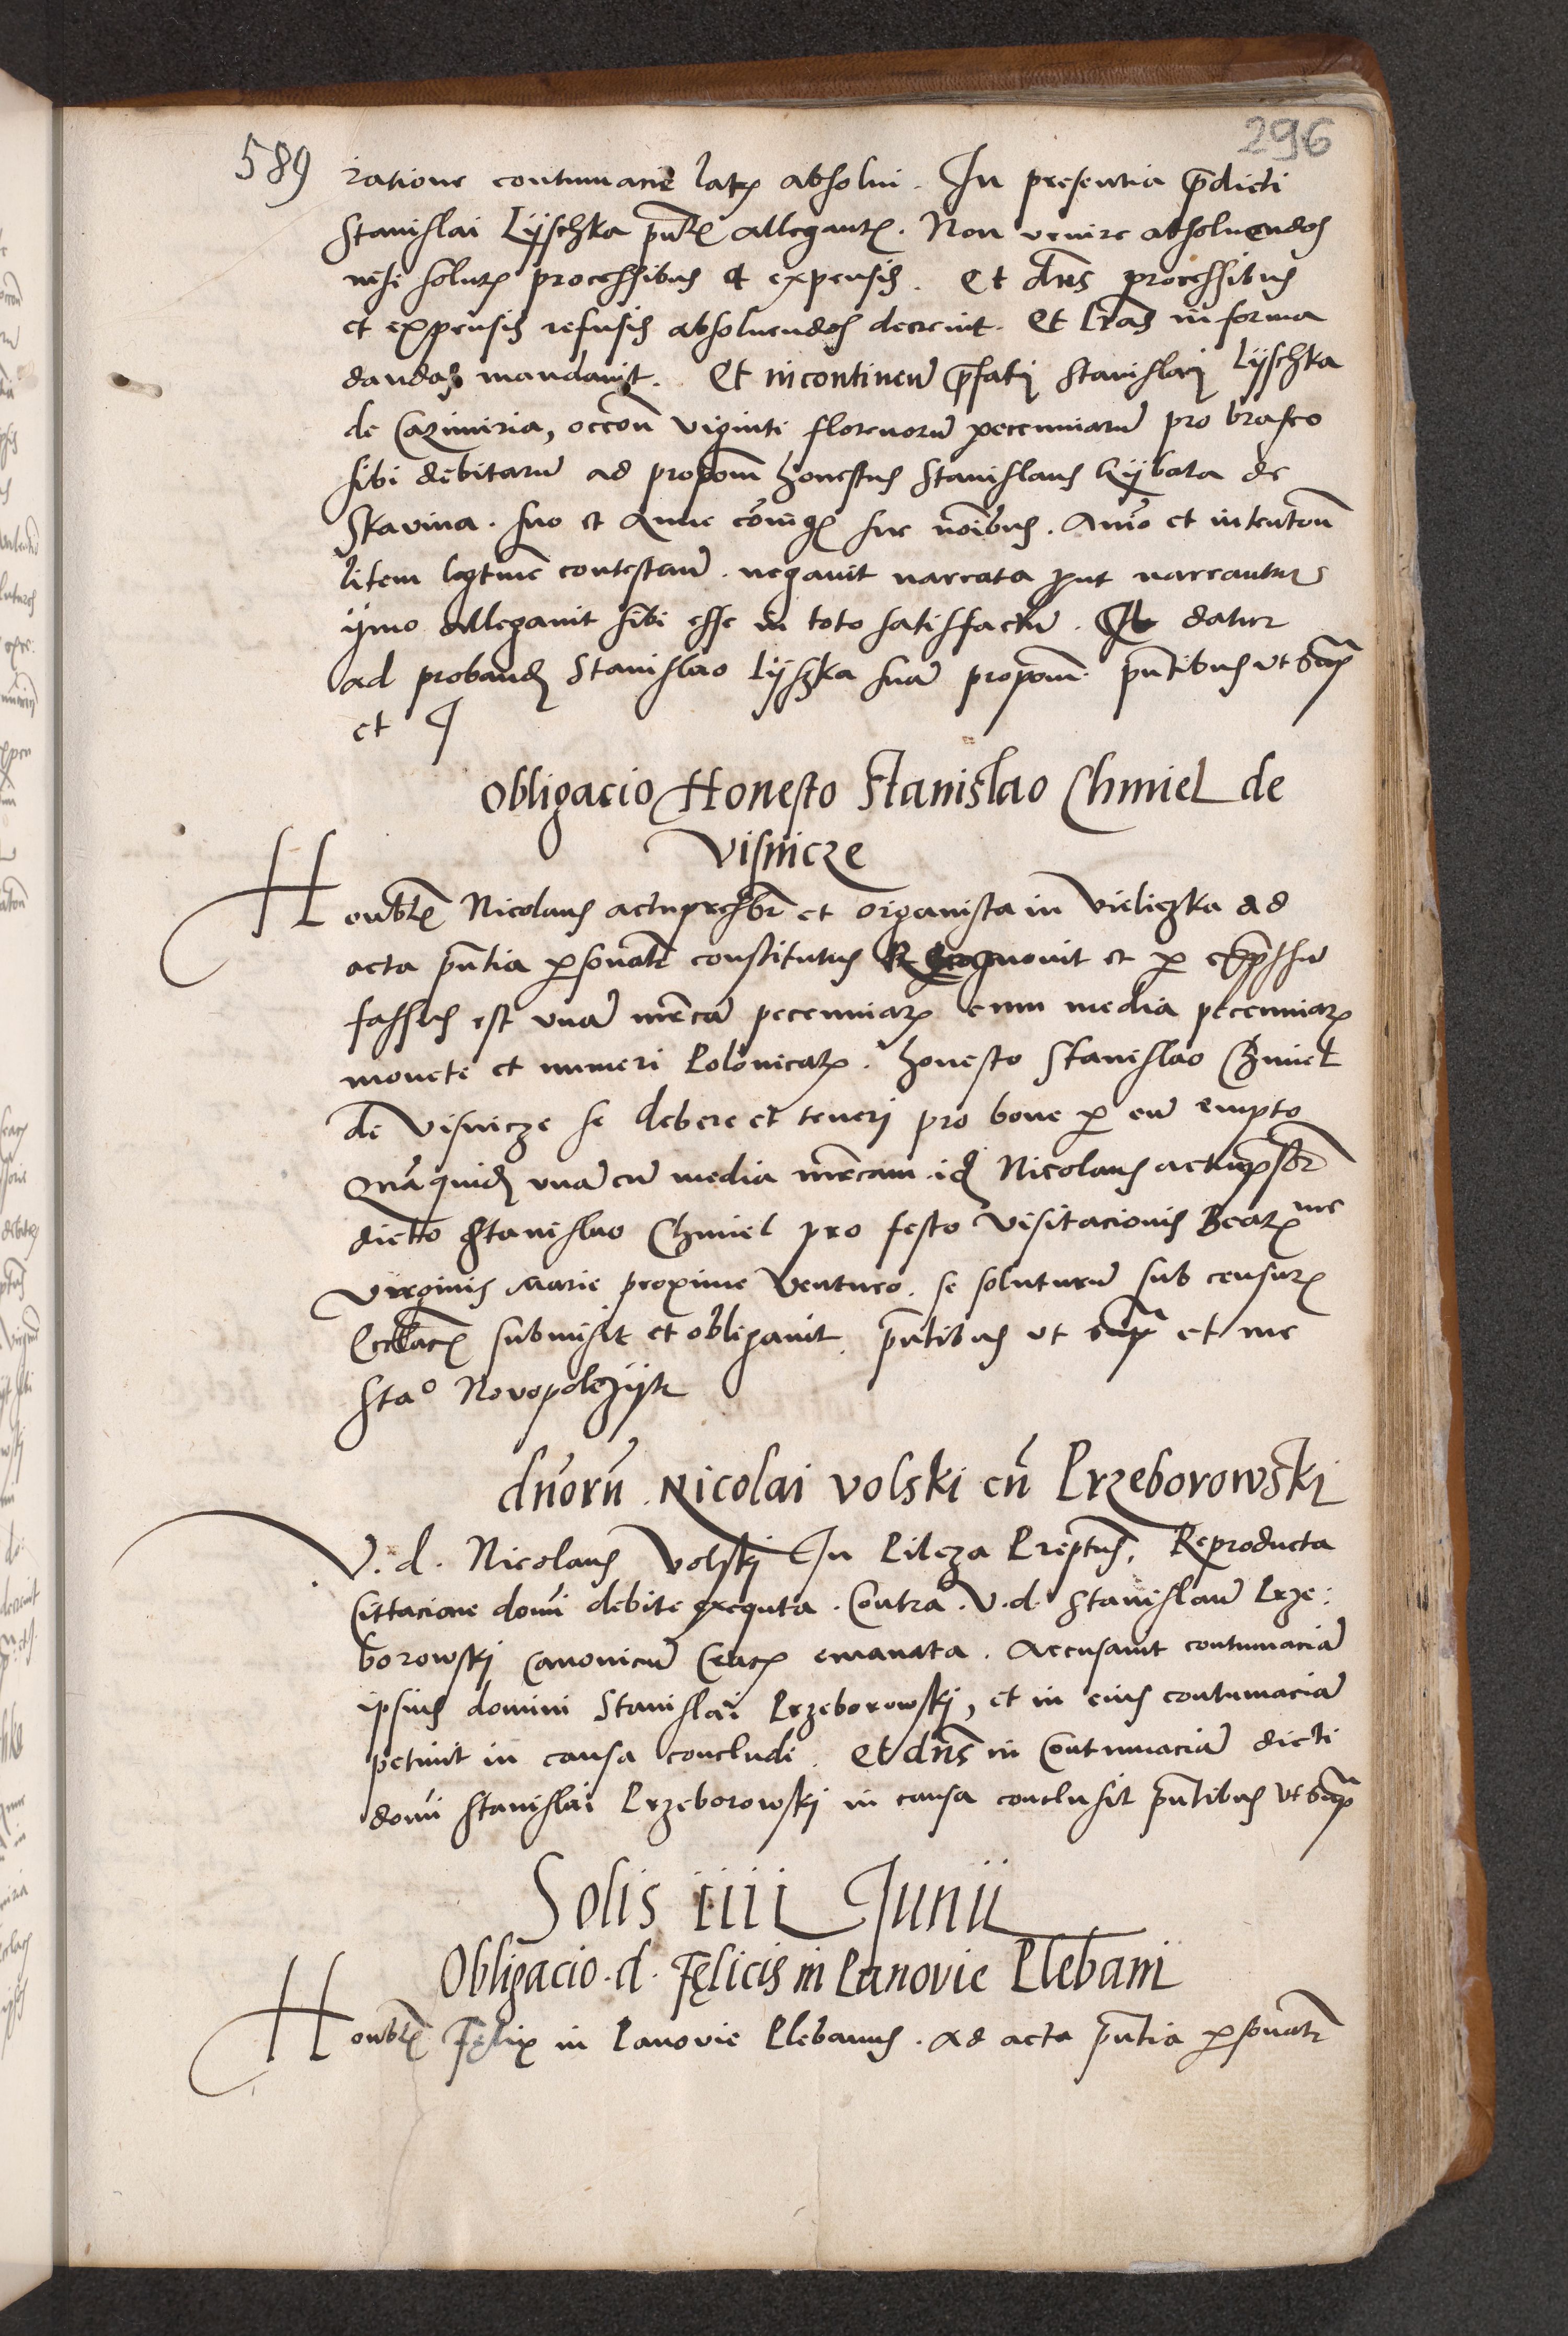 296
589 ratione contumacie latis absolui. In presentia p̄dicti
Stanislai Lÿschka p̄ntis allegantis. Non venire absoluendos
nisi solutis processibus et expensis. Et dn̄s processibus
et expensis refusis absoluendos decreuit. Et lr̄as in forma
dandas mandauit. Et incontinen̄ p̄fatj Stanislaj Lÿschka
de Cazimiria, occōn viginti florenorū pecuniarū pro braseo
sibi debitarū ad propōm honestus Stanislaus Rÿbala de
Skavina. suo et Anne cōiugis sue nōibus. Animo et intentōn
litem legtime contestan̄. negauit narrata put narrantur
ÿmo allegauit sibi esse in toto satisfactū. Et datur
ad proband Stanislao Lÿszka suā propōm. pn̄tibus ut sup̄
et
Obligacio Honesto Stanislao Chmiel de
Visnicze
Honoblis Nicolaus actupresbr et organista in Vieliczka ad
acta pn̄tia personalr constitutus Recognouit et per exp̄ssū
fassus est vnā mr̄cā pecuniar cum media pecuniar
monete et numeri Polonicalis. honesto Stanislao Chmiel
de Visnicze se debere et tenerj pro boue per eū empto
Quāquid vnā cū media mr̄cam id Nicolaus actup̄sbr
dicto Stanislao Chmiel pro festo Visitacionis Beatme
Virginis Marie proxime venturo. se soluturū sub censuris
Eccllacis submisit et obligauit. pn̄tibus ut sup̄ et me
Stao Novopolczÿk
dn̄orū Nicolai Volski cū Przeborowskj
V. d. Nicolaus Volskj In Pilcza Preptus, Reproducta
Cittacione domi debite exequta. Contra. V. d. Stanislaū Prze:
borowskj Canonicū Craco emanata. Accusauit contumaciā
ipsius domini Stanislai Przeborowskj, et in eius contumaciā
petiuit in causa concludi. Et dn̄s in Contumaciā dicti
domi Stanislai Przeborowskj in causa conclusit pn̄tibus ut sup̄
Solis iiii Junii
Obligacio. d. Fęlicis in Lanovie Plebani
Honoblis Fęlix in Lanovie Plebanus. Ad acta pn̄tia personalr